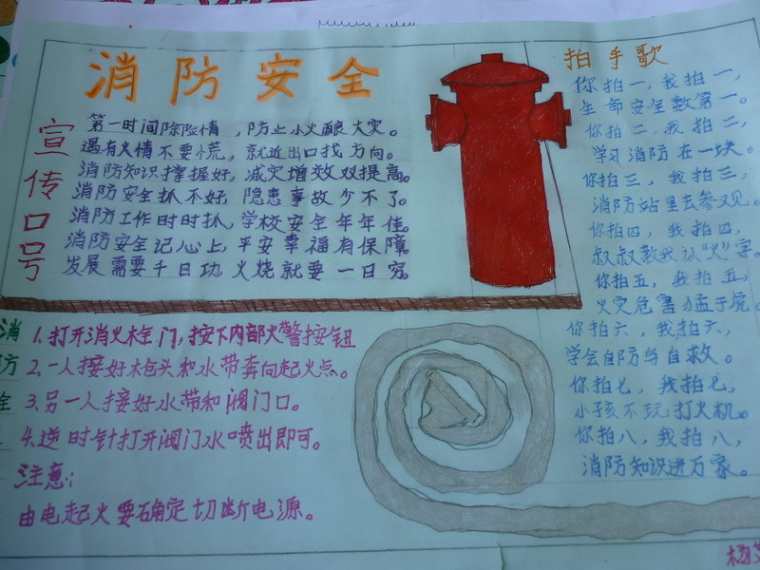 消防安全
宣传口号
第一时间除险情，防止小火酿大灾。
遇有火情不要慌，就近出口找方向。
消防知识撑握好，减灾增效双提高。
消防安全抓不好 隐患事故少不了。
消防工作时时抓，学校安全年年佳。
消防安全记心上，平安幸福有保障
发展需要千日功 火烧就要一日穷。
拍手歌
你拍一，我拍一，
生命安全数第一。
你拍二，我拍二，
学习消防在一块。
你拍三，我拍三，
消防站里去参观。
你拍四，我拍四，
叔叔教我认“火”字。
你拍五，我拍五，
火灾危害猛于虎。
你拍六，我拍六，
学会自防与自救。
你拍七，我拍七，
小孩不玩打火机。
你拍八，我拍八，
消防知识进万家。
消
方
全
1.打开消火栓门，按下内部火警按钮
2.一人接好枪头和水带奔向起火点。
3.另一人接好水带和阀门口。
4.逆时针打开阀门水喷出即可。
注意：
由电起火要确定切断电源。